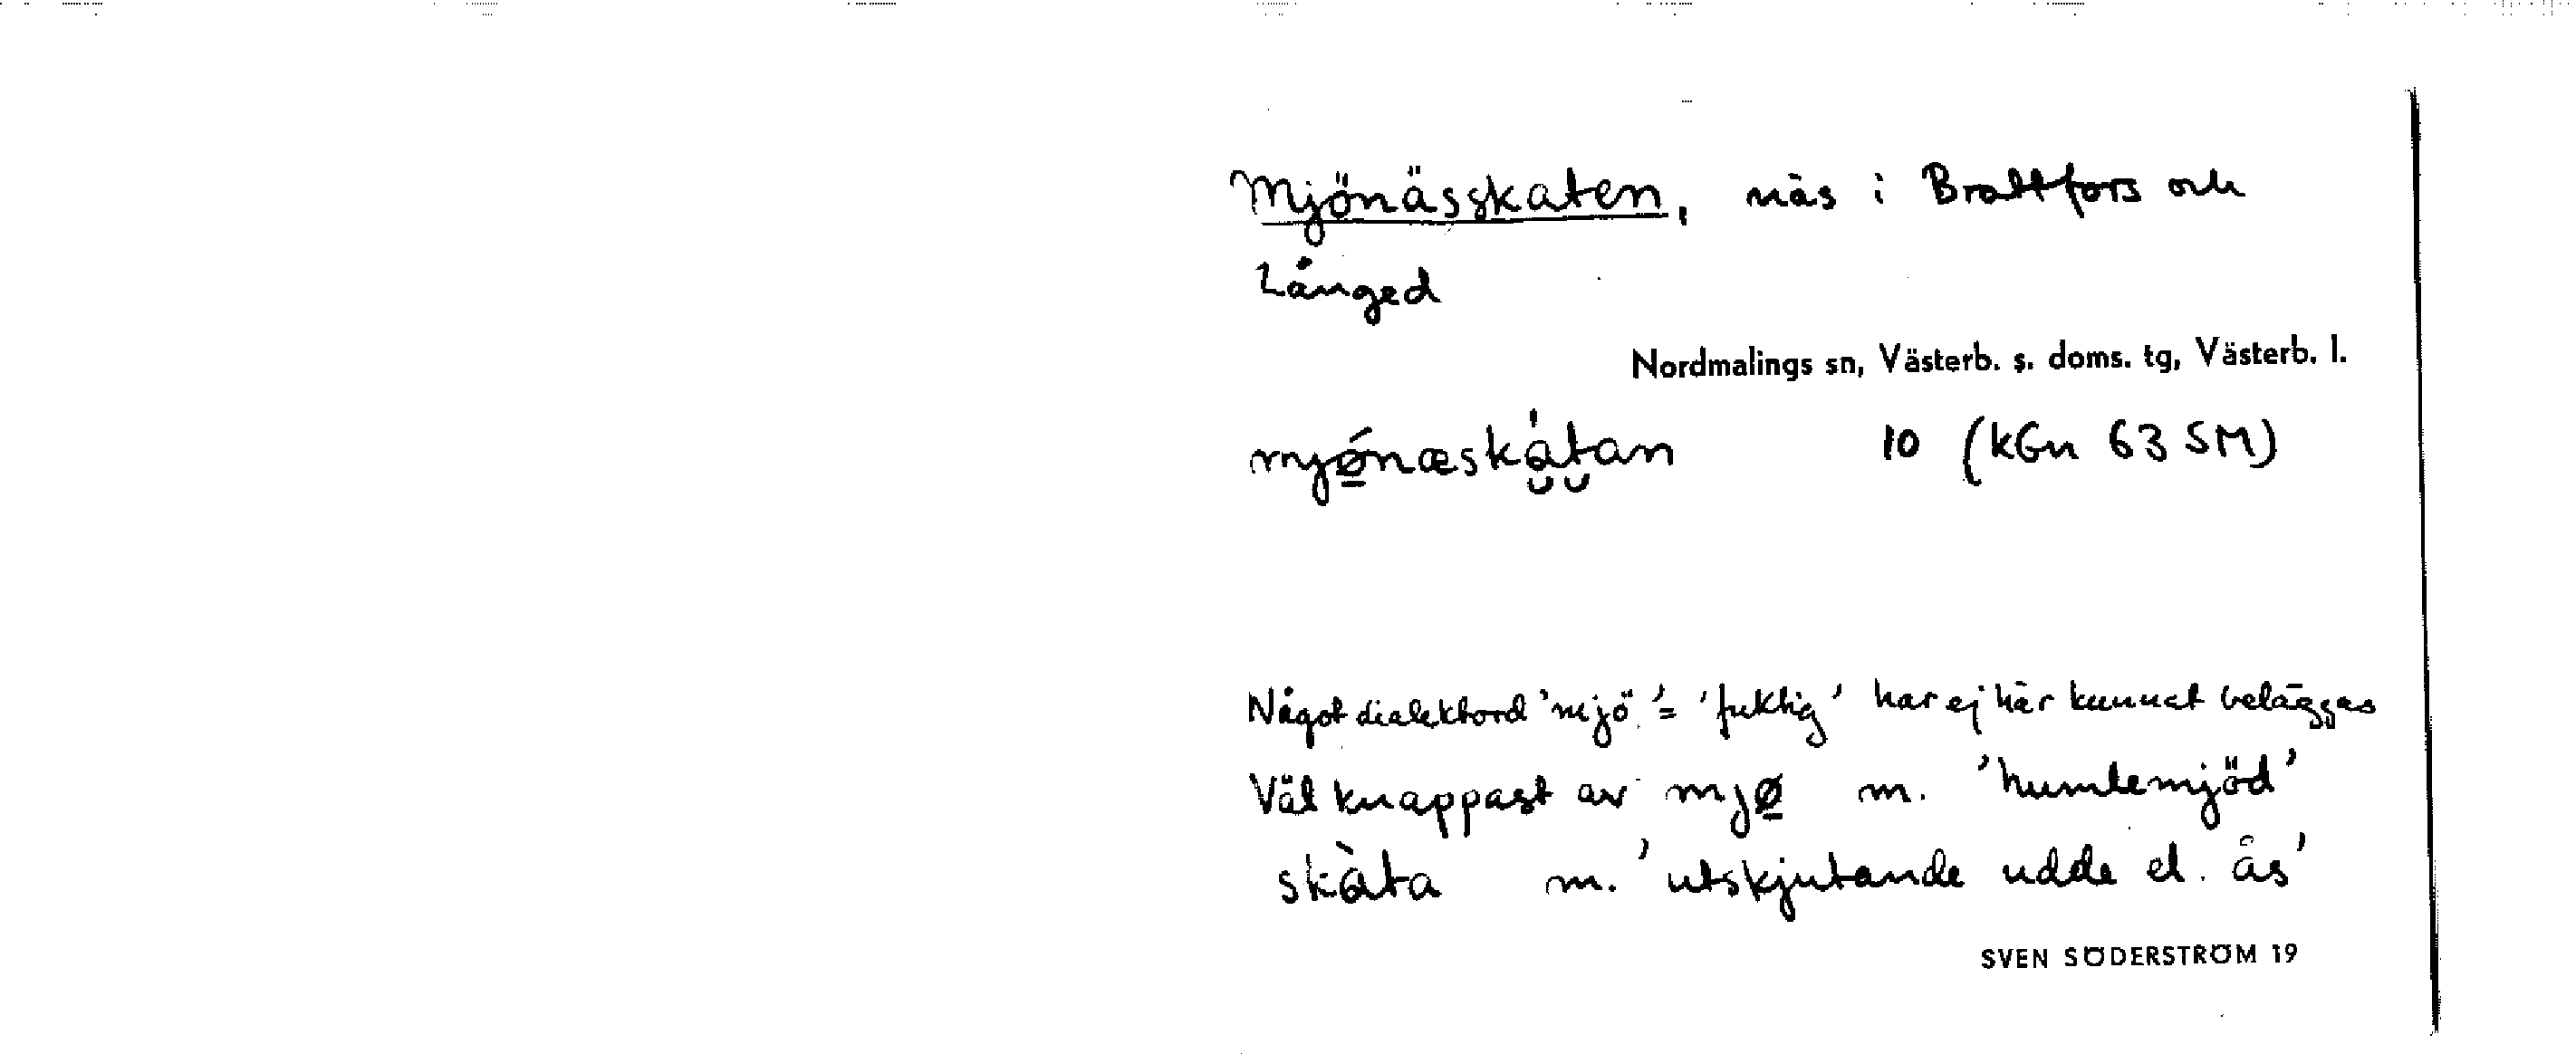 Mjönässkaten, näs i Brattfors och
Långed
Nordmalings sn, Västerb. s. doms. tg, Västerb. l.
mjǿ̲næskå̀tan 10 (kGn 63 SM)
Något dialektord 'mjö' = 'fuktig' har ej här kunnat beläggas
Väl knappast av mjø̲ m. 'humlemjöd'
skàta m. 'utskjutande udde el. ås'
SVEN SÖDERSTRÖM 19